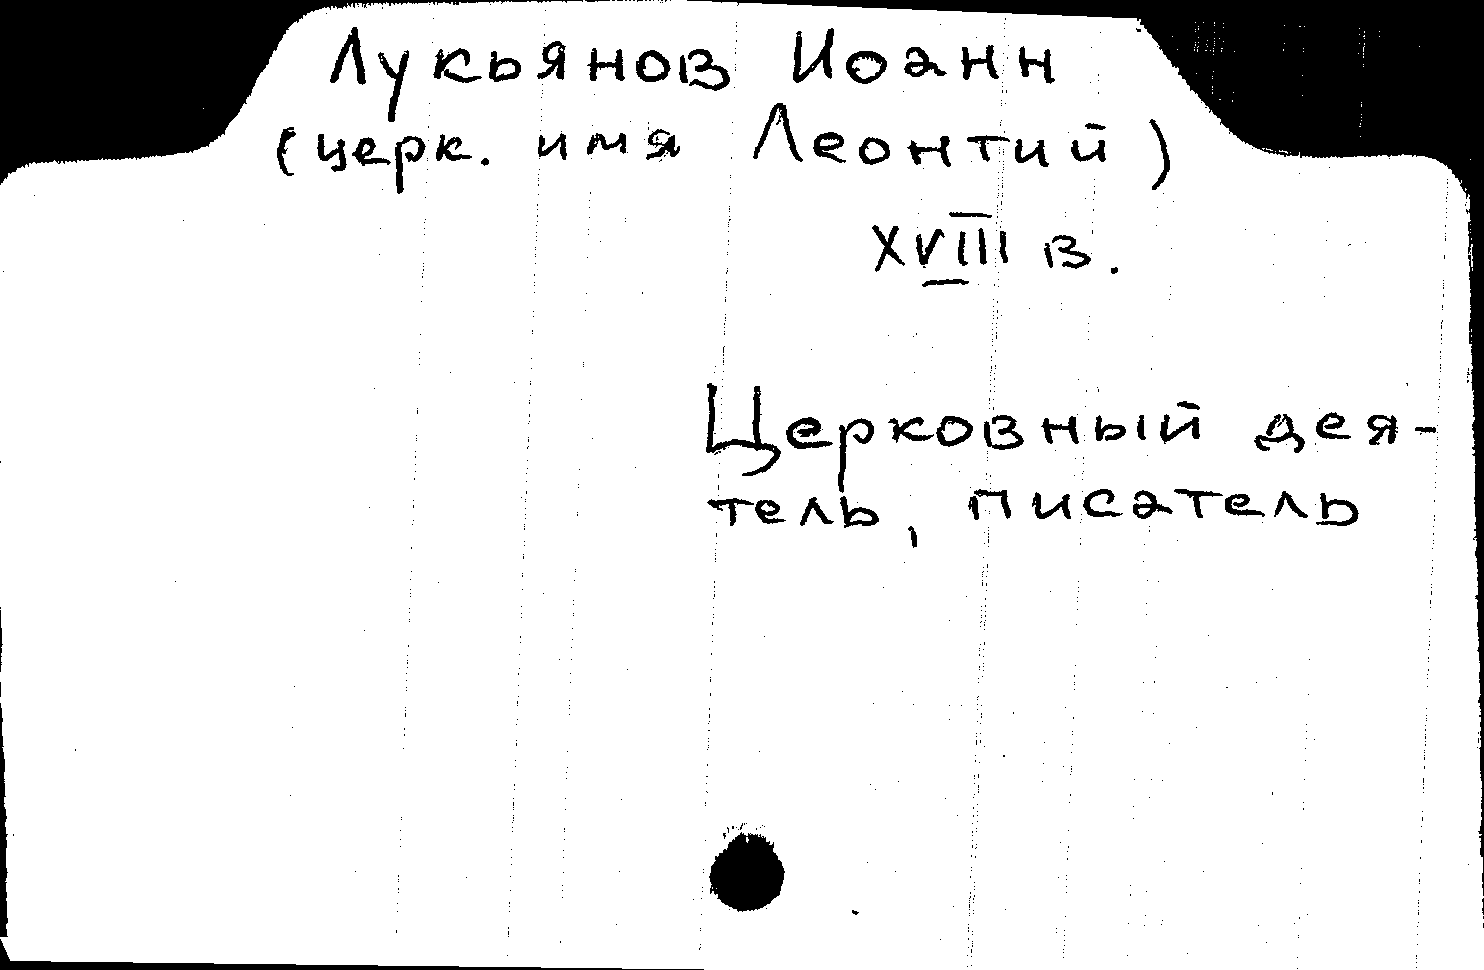 Лукьянов Иоанн
(церк. имя Леонтий)
XVIII в.
Церковный дея-
тель, писатель